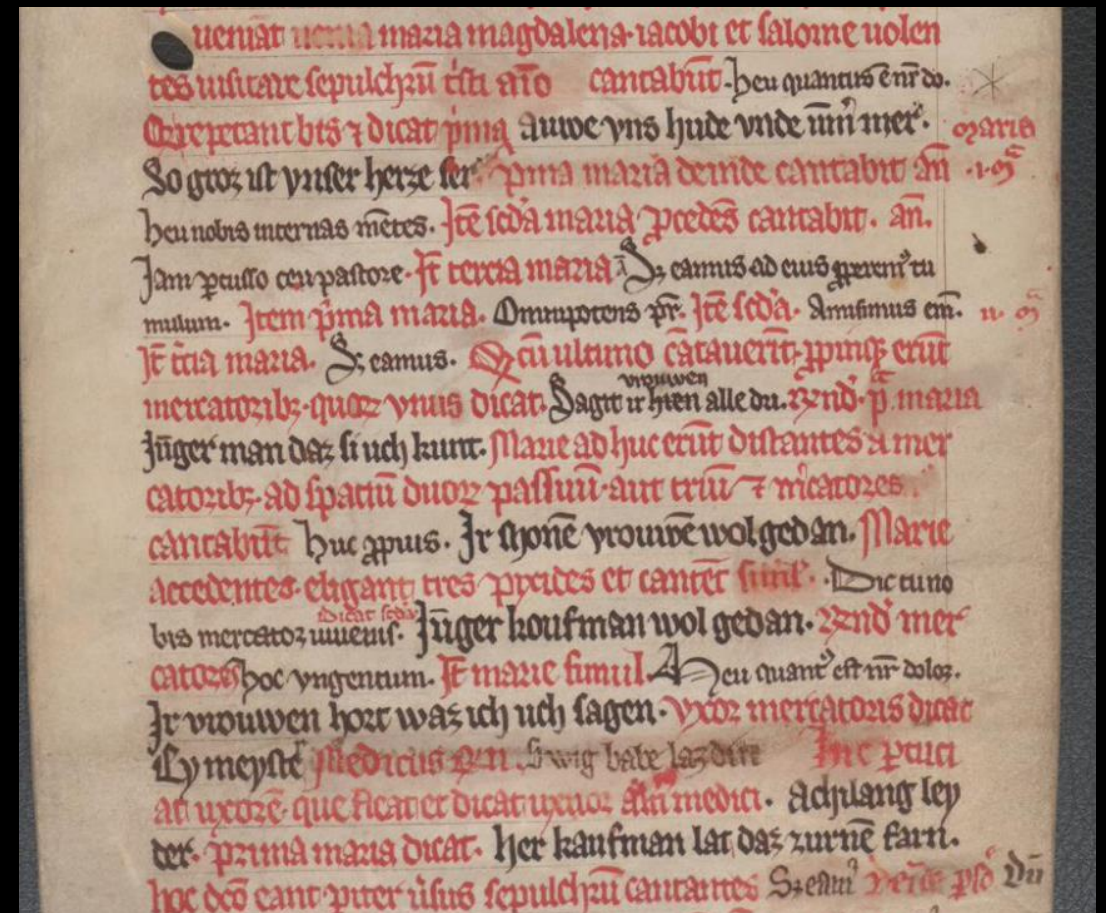 ueniāt uenia maria magdalena iacobi et salome uolen
tes uisitare sepulchrū c̄sti cantabūt. heu quantus ē nr̄ do.
repetant dicat auwe vns hude vnde ūm̄ mer. maria
So groz ist vnser herze ser. p̄ma maria deinde cantabit an̄
heu nobis internas mētes. Itē scd̄a maria p̄cedēs cantabit. an̄.
Jam p̄cusso ceu pastore. It̄ tercia maria S; eamus ad eius tu
mulum. Item p̄ma maria. Omnipotens pr̄. Itē scd̄a. Amisimus em̄.
It̄ t̄cia maria. S; eamus. cū ultimo cātauerīt. ꝓpinq; erūt
vrouwen
mercatorib;. quoꝝ vnus dicat. Sagit ir hien alle du. Rn̄d. p̄. maria
Jūger man daz si uch kunt. Marie ad huc erūt distantes a mer
catorib;. ad spatiū duoꝝ passuū. aut triū ⁊ m̄catores
cantabūt huc ꝓpius. Ir shonē vrouwē wol gedan. Marie
accedentes. eligant tres pixides et cantēt simł. Dic tu no
dicat scd̄a
bis mercator iuuenis. Jūger koufman wol gedan. Rn̄d mer
catores hoc vngentum. It̄ marie simul. Heu quant᾽ est nr̄ dolor.
Ir vrouwen hort waz ich uch sagen. vxor mercatoris dicat
Ey meystē Medicus Swig babe laz dite Hic p̄cuci
at uxorē. que et dicat medici. Ach lang ley
der. Prima maria dicat. her kaufman lat daz zurnē farn.
hoc dc̄o eant pit̄er ūsus sepulchrū cantantes S; eam᾽ dū